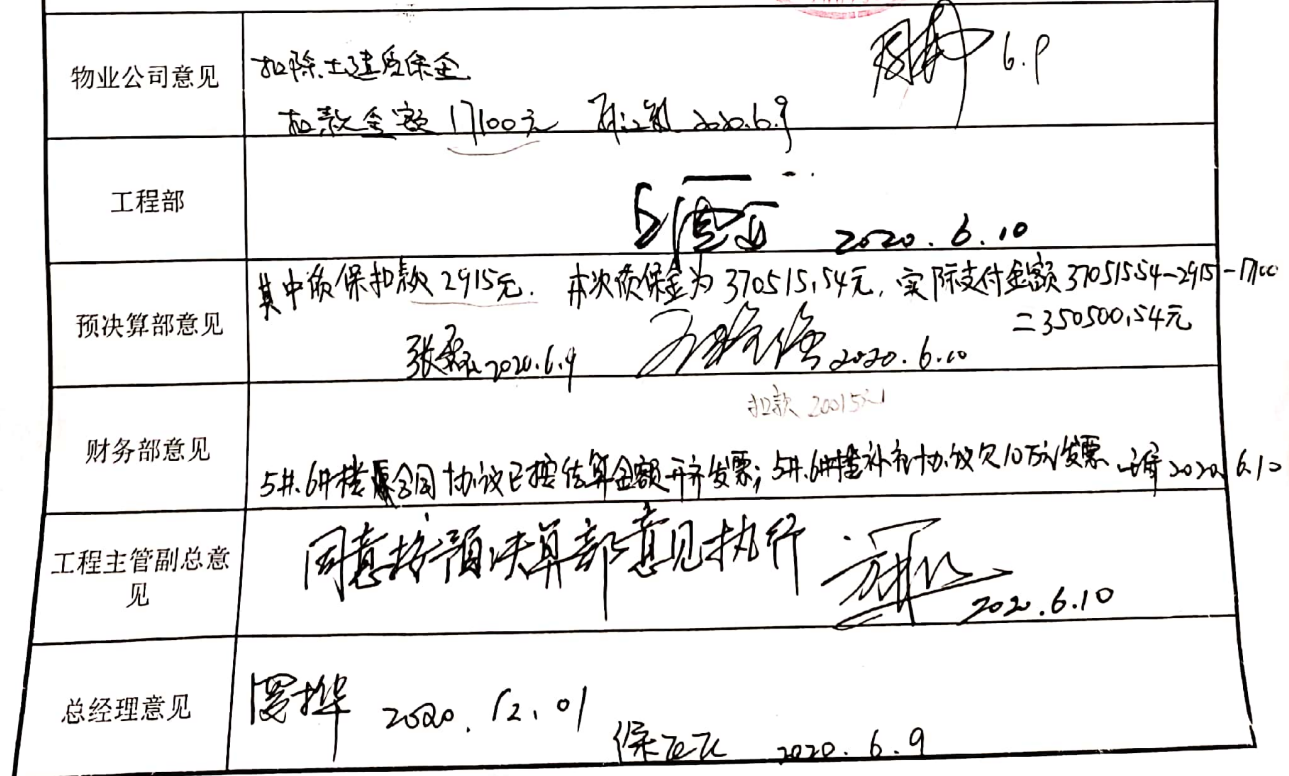 物业公司意见
扣除土建质保金
6.9
扣款金额 17100元 2020.6.9
工程部
2020.6.10
预决算部意见
其中质保扣款2915元. 本次质保金为370515.54元, 实际支付金额370515.54-2915-17100
=350500.54元
2020.6.9
2020.6.10
财务部意见
扣款 20015元
5#.6#楼 合同 协议已按结算金额开齐发票; 5#.6#楼补充协议欠10万元发票 2020.6.10
工程主管副总意
见
同意按预决算部意见执行
2020.6.10
总经理意见
2020.12.01
2020.6.9